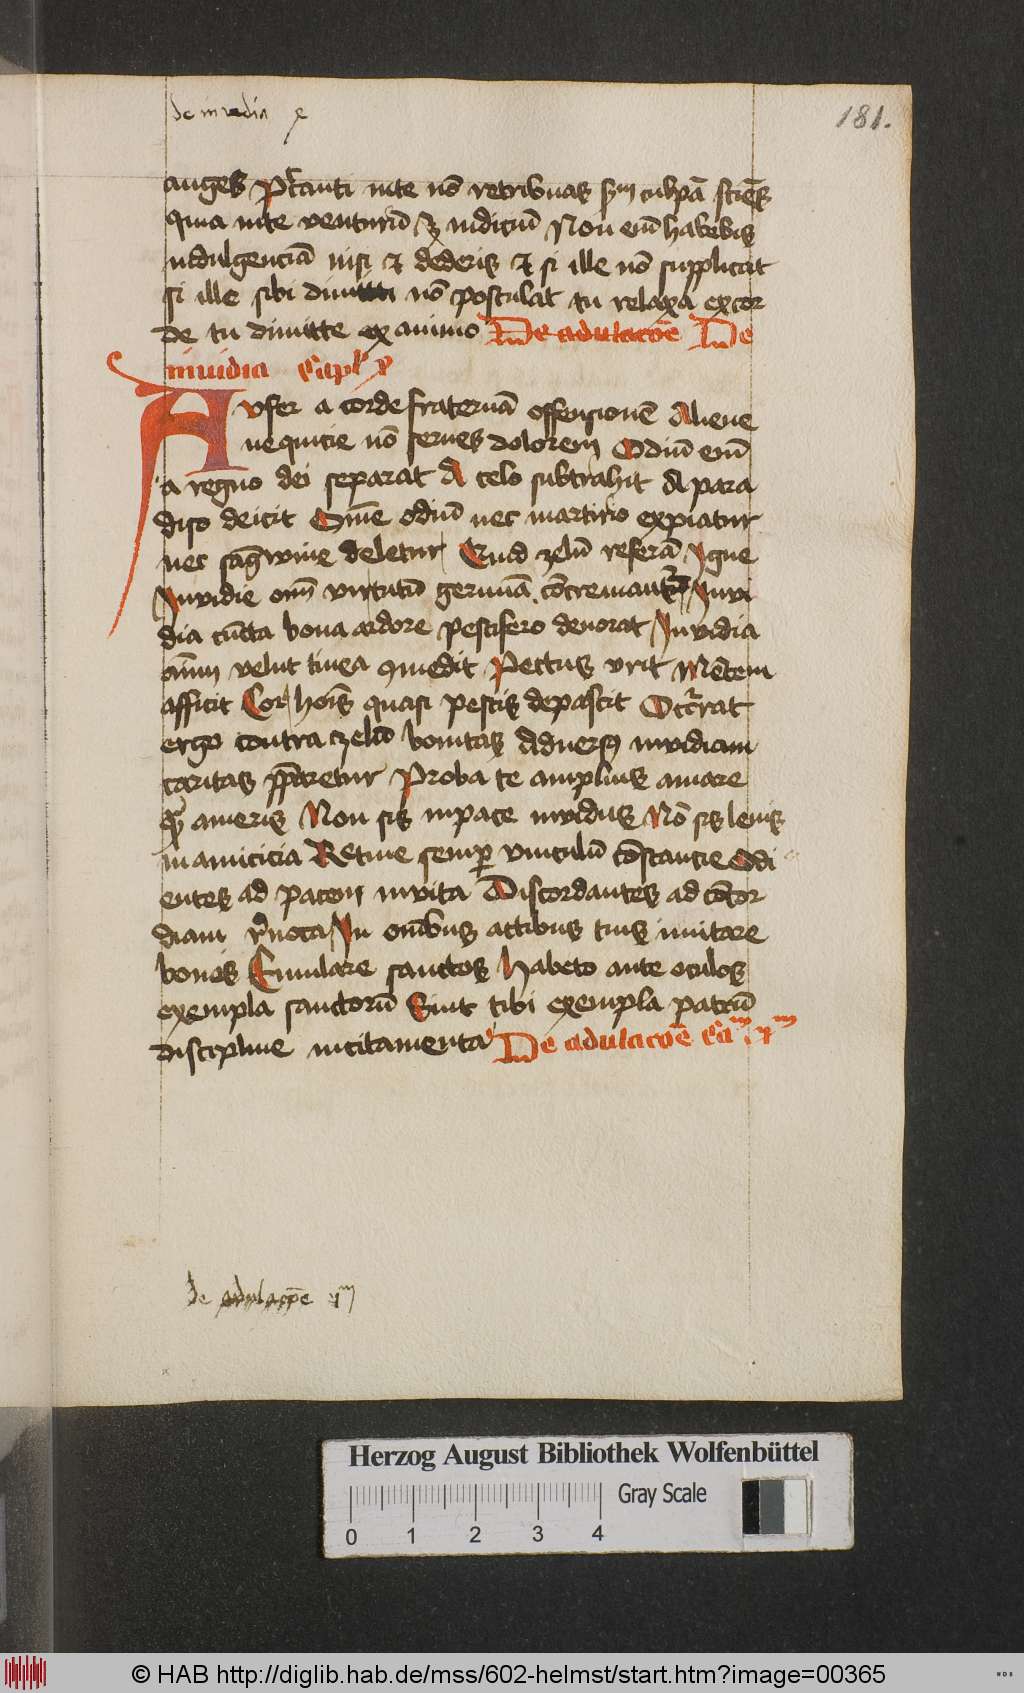 de inuidia x
181.
auges Pctanti inte nō retribuas scdm culpā sciēs
quia inte venturū est iudiciū Non enī habebis
indulgenciā nisi et dederis et si ille nō supplicat
si ille sibi dimitti nō postulat tu relaxa ex cor
de tu dimitte ex animo De adulacōe De
inuidia Capl x
Aufer a corde fraternā offensionē Aliene
nequicie nō serues dolorem Odiū enī
a regno dei separat A celo subtrahit A para
diso deicit Siue odiū nec martirio expiatur
nec sāgwine deletur Quid zelū referā Igne
Inuidie omī virtutū germina cōcremantr Inui
dia cūcta bona ardore pestifero deuorat Inuidia
aīam velut tinea 9medit Pectus vrit Mētem
afficit Cor hoīs quasi pestis depascit Occrat
ergo contra zelū bonitas Aduers9 inuidiam
caritas pparetur Proba te amplius amare
qm ameris Non sis inpace inuidus Nō sis leuis
in amicicia Retine semp vinculū cōstancie Odi
entes ad pacem inuita Discordantes ad cōcor
diam reuoca In omībus actibus tuis imitare
bonos Emulare sanctos Habeto ante oculos
exempla sanctorū Sint tibi exempla patrū
discipline incitamenta De adulacōe Cam xjm
de adulacōe xjm
Herzog August Bibliothek Wolfenbüttel
Gray Scale
0 1 2 3 4
© HAB http://diglib.hab.de/mss/602-helmst/start.htm?image=00365